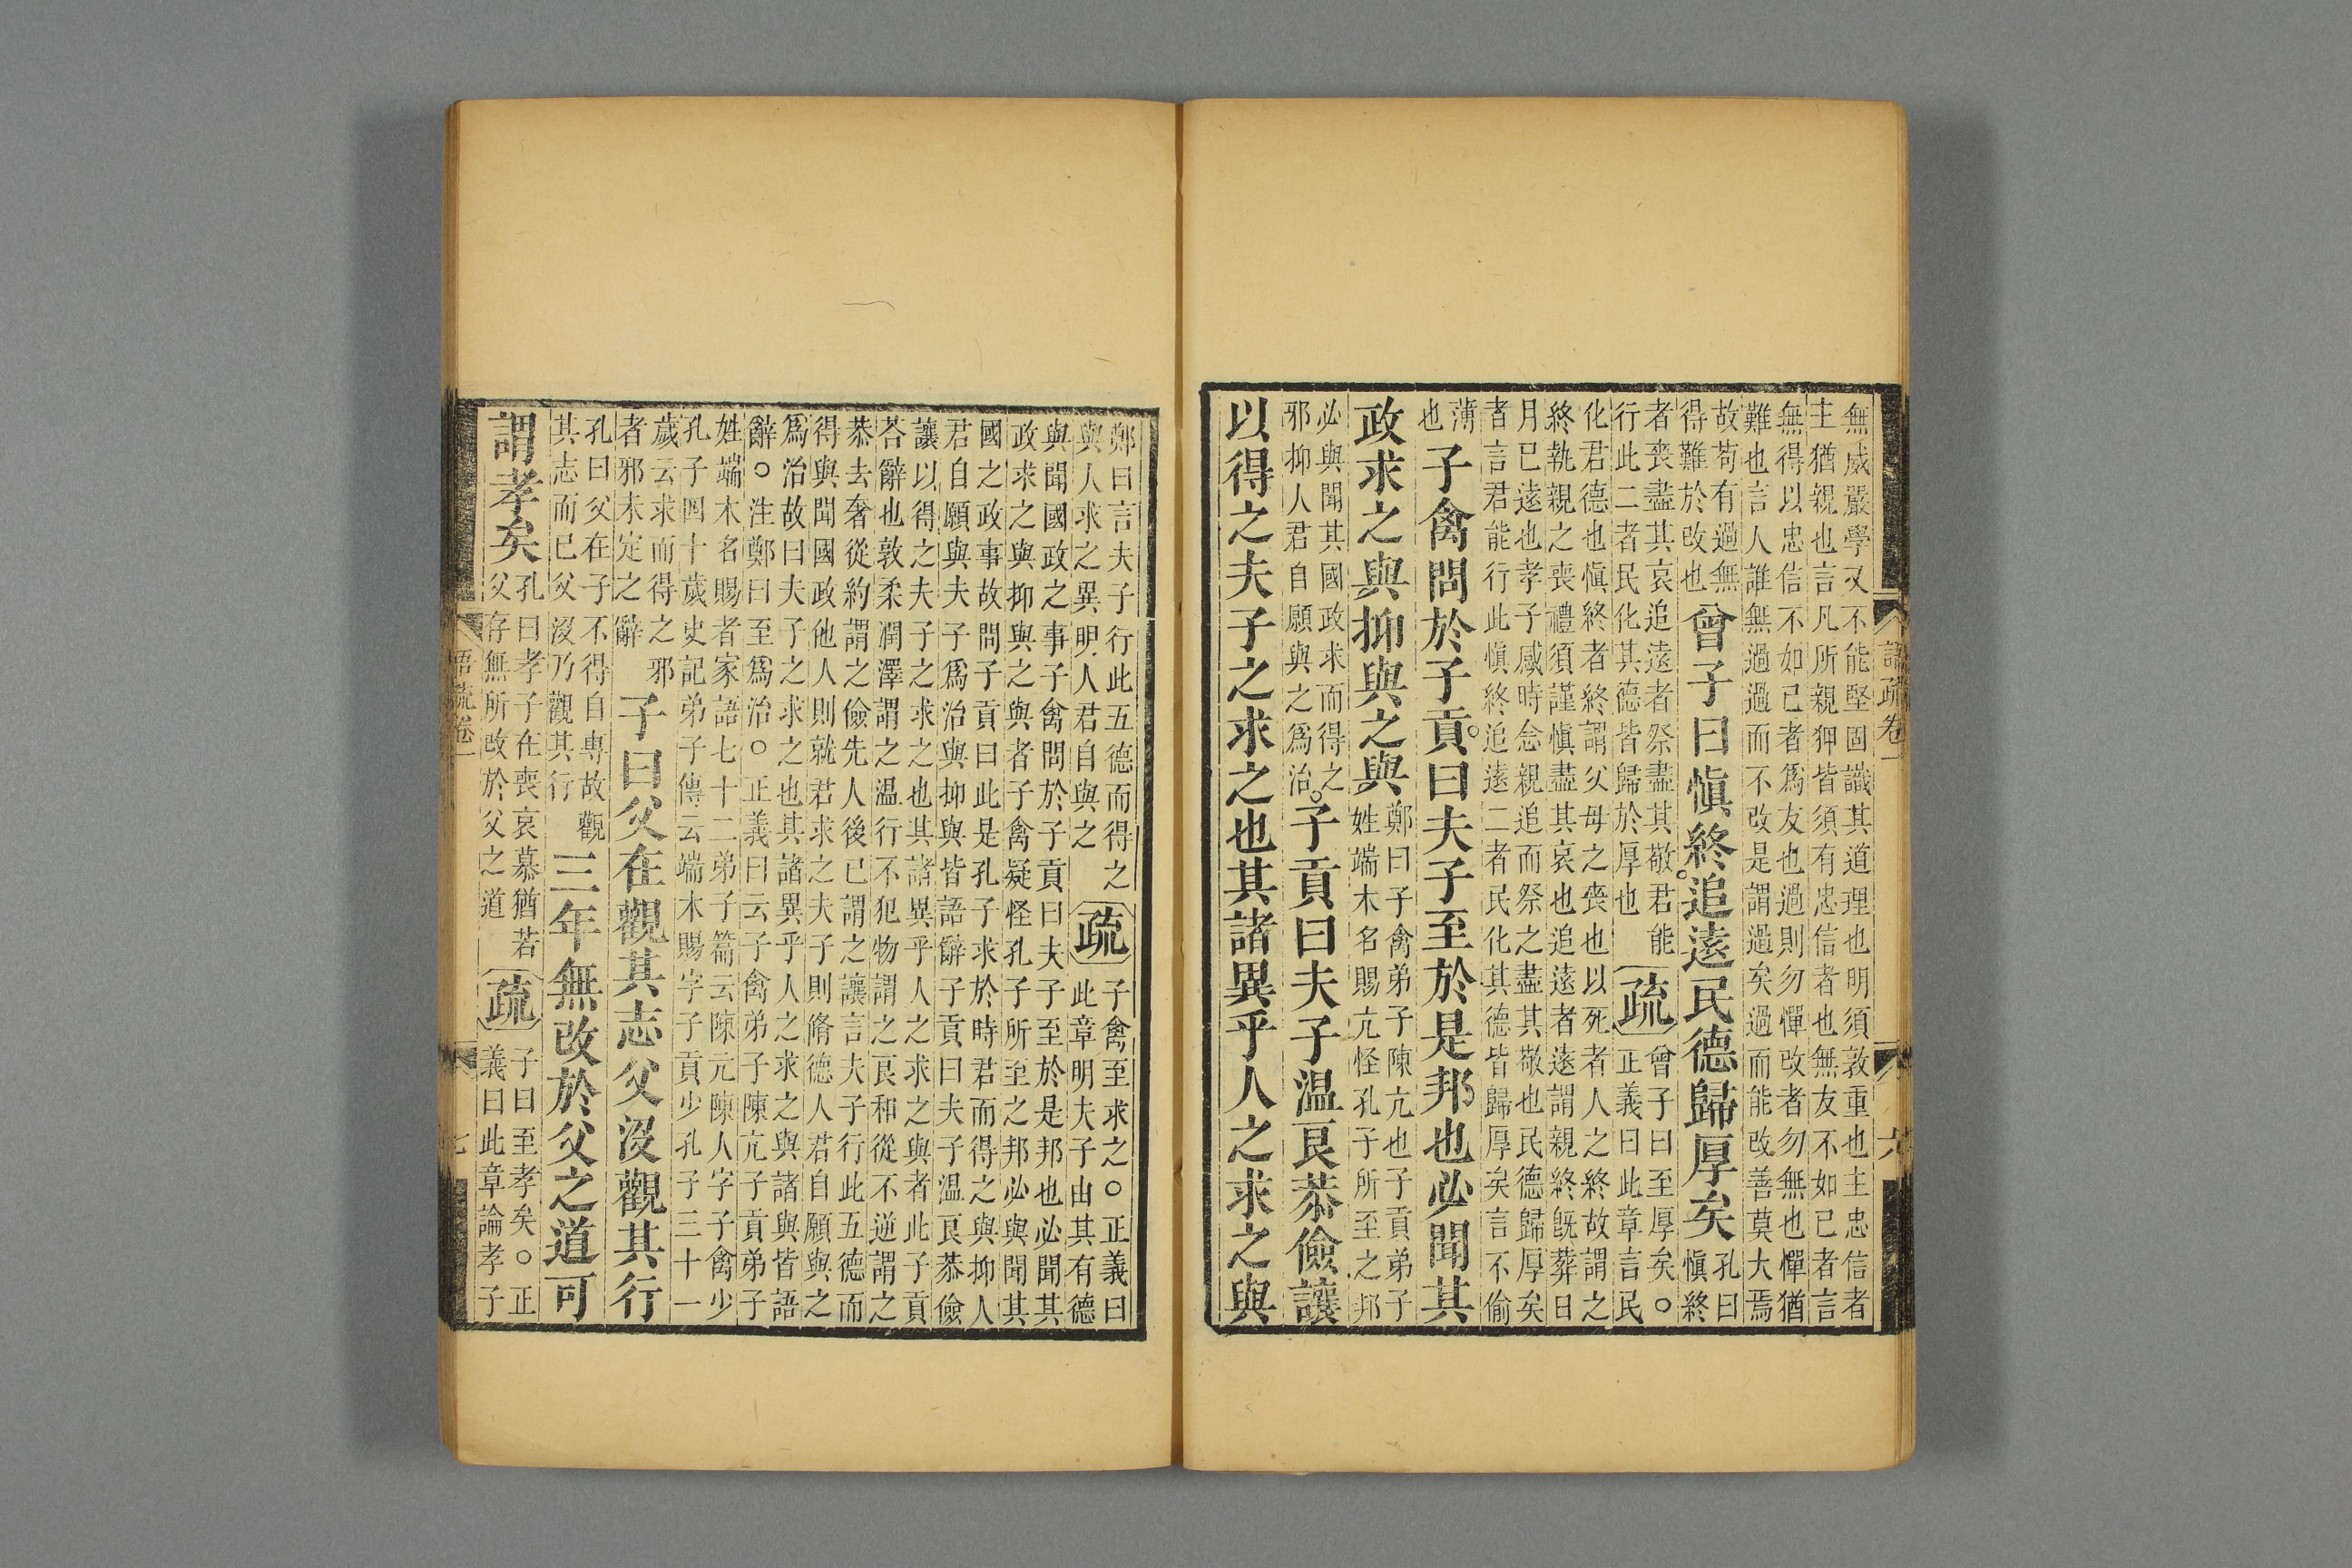 無威嚴學又不能堅固識其道理也明須敦重也主忠信者
主猶親也言凡所親狎皆須有忠信者也無友不如己者言
無得以忠信不如己者為友也過則勿憚改者勿無也憚猶
難也言人誰無過過而不改是謂過矣過而能改善莫大焉
故苟有過無
得難於改也
曾子曰慎終追遠民德歸厚矣
孔曰
慎終
者喪盡其哀追遠者祭盡其敬君能
行此二者民化其德皆歸於厚也
疏
曾子曰至厚矣○
正義曰此章言民
化君德也慎終者終謂父母之喪也以死者人之終故謂之
終執親之喪禮須謹慎盡其哀也追遠者遠謂親終既葬日
月已遠也孝子感時念親追而祭之盡其敬也民德歸厚矣
者言君能行此慎終追遠二者民化其德皆歸厚矣言不偷
薄
也
子禽問於子貢曰夫子至於是邦也必聞其
政求之與抑與之與
鄭曰子禽弟子陳亢也子貢弟子
姓端木名賜亢怪孔子所至之邦
必與聞其國政求而得之
邪抑人君自願與之為治
子貢曰夫子温良恭儉讓
以得之夫子之求之也其諸異乎人之求之與
語疏卷一
六
鄭曰言夫子行此五德而得之
與人求之異明人君自與之
疏
子禽至求之○正義曰
此章明夫子由其有德
與聞國政之事子禽問於子貢曰夫子至於是邦也必聞其
政求之與抑與之與者子禽疑怪孔子所至之邦必與聞其
國之政事故問子貢曰此是孔子求於時君而得之與抑人
君自願與夫子為治與抑與皆語辭子貢曰夫子温良恭儉
讓以得之夫子之求之也其諸異乎人之求之與者此子貢
荅辭也敦柔潤澤謂之温行不犯物謂之良和從不逆謂之
恭去奢從約謂之儉先人後己謂之讓言夫子行此五德而
得與聞國政他人則就君求之夫子則脩德人君自願與之
為治故曰夫子之求之也其諸異乎人之求之與諸與皆語
辭○注鄭曰至為治○正義曰云子禽弟子陳亢子貢弟子
姓端木名賜者家語七十二弟子篇云陳元陳人字子禽少
孔子四十歲史記弟子傳云端木賜字子貢少孔子三十一
歲云求而得之邪
者邪未定之辭
子曰父在觀其志父沒觀其行
孔曰父在子不得自專故觀
其志而已父沒乃觀其行
三年無改於父之道可
謂孝矣
孔曰孝子在喪哀慕猶若
父存無所改於父之道
疏
子曰至孝矣○正
義曰此章論孝子
語疏卷一
七